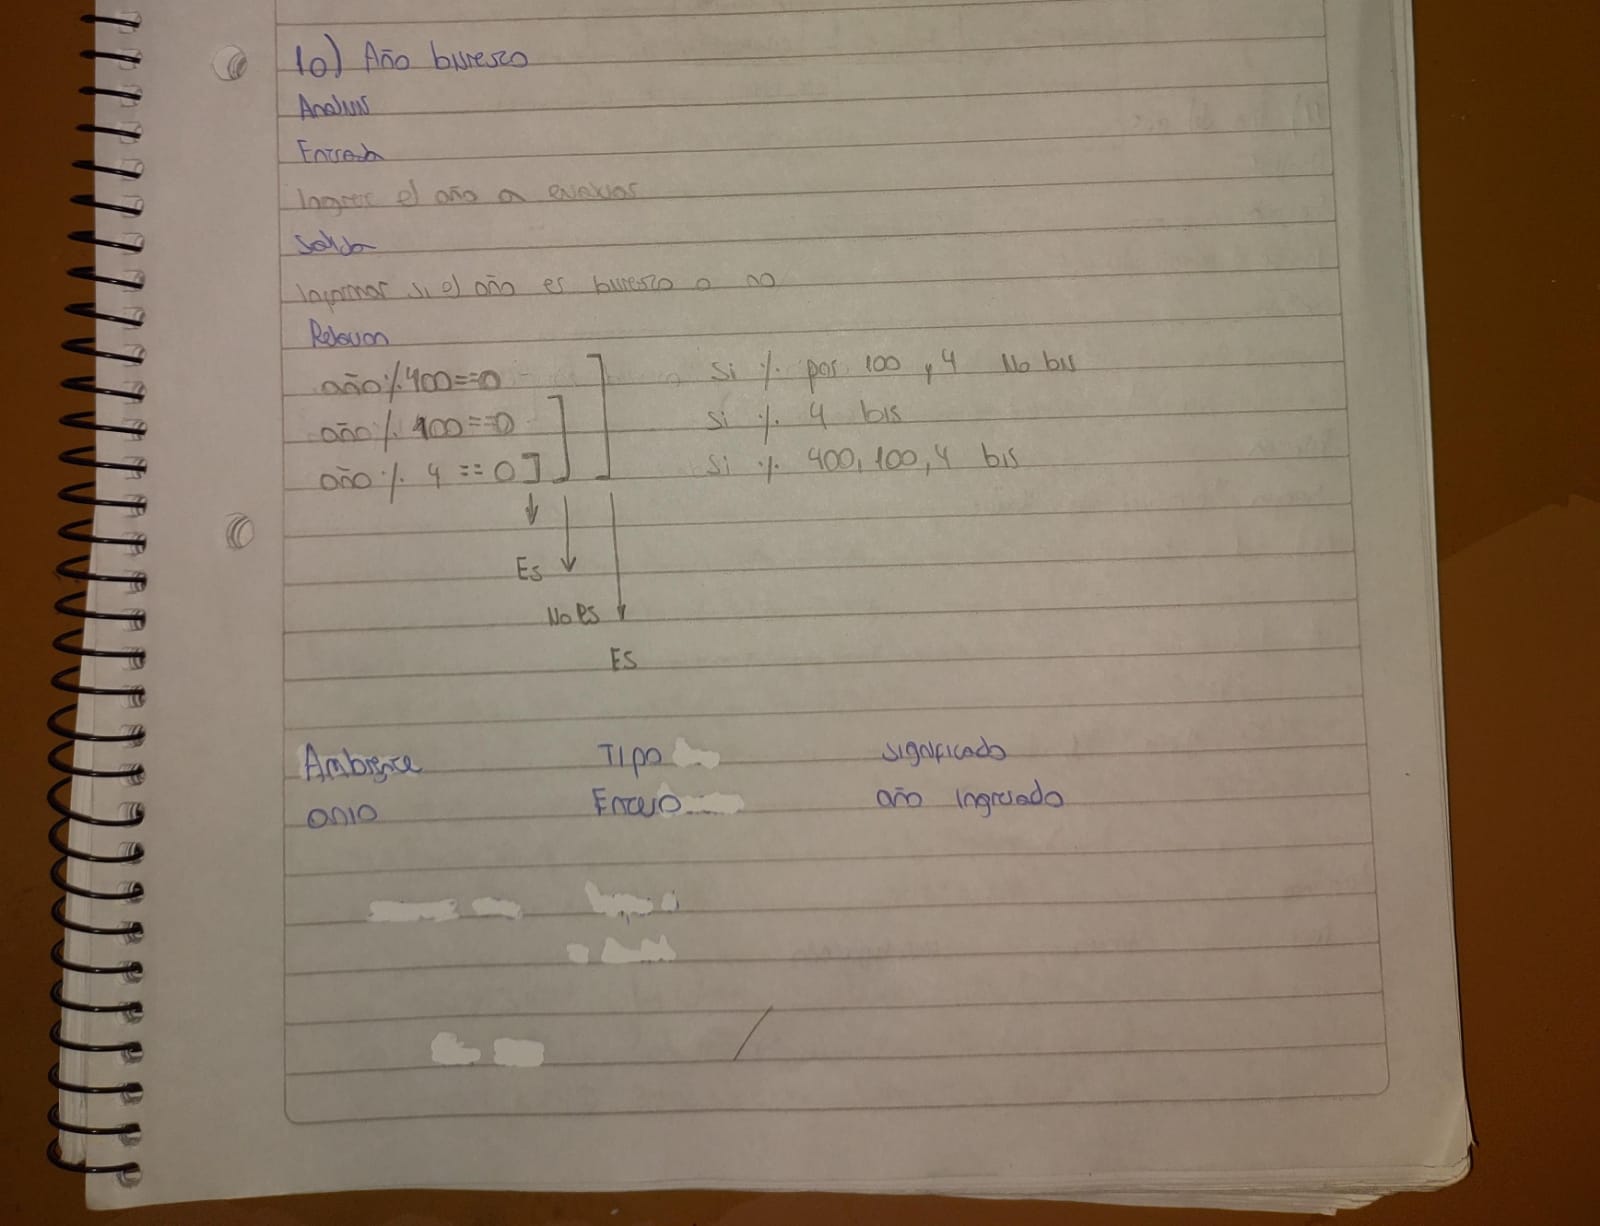 10) Año bisiesto
Analisis
Entrada
Ingresar el año a evaluar
Salida
Informar si el año es bisiesto o no
Relacion
año % 400 == 0 Si % por 100 y 4 No bis
año % 100 == 0 Si % 4 bis
año % 4 == 0 Si % 400, 100, 4 bis
Es
No es
ES
Ambiente Tipo significado
anio Entero año ingresado